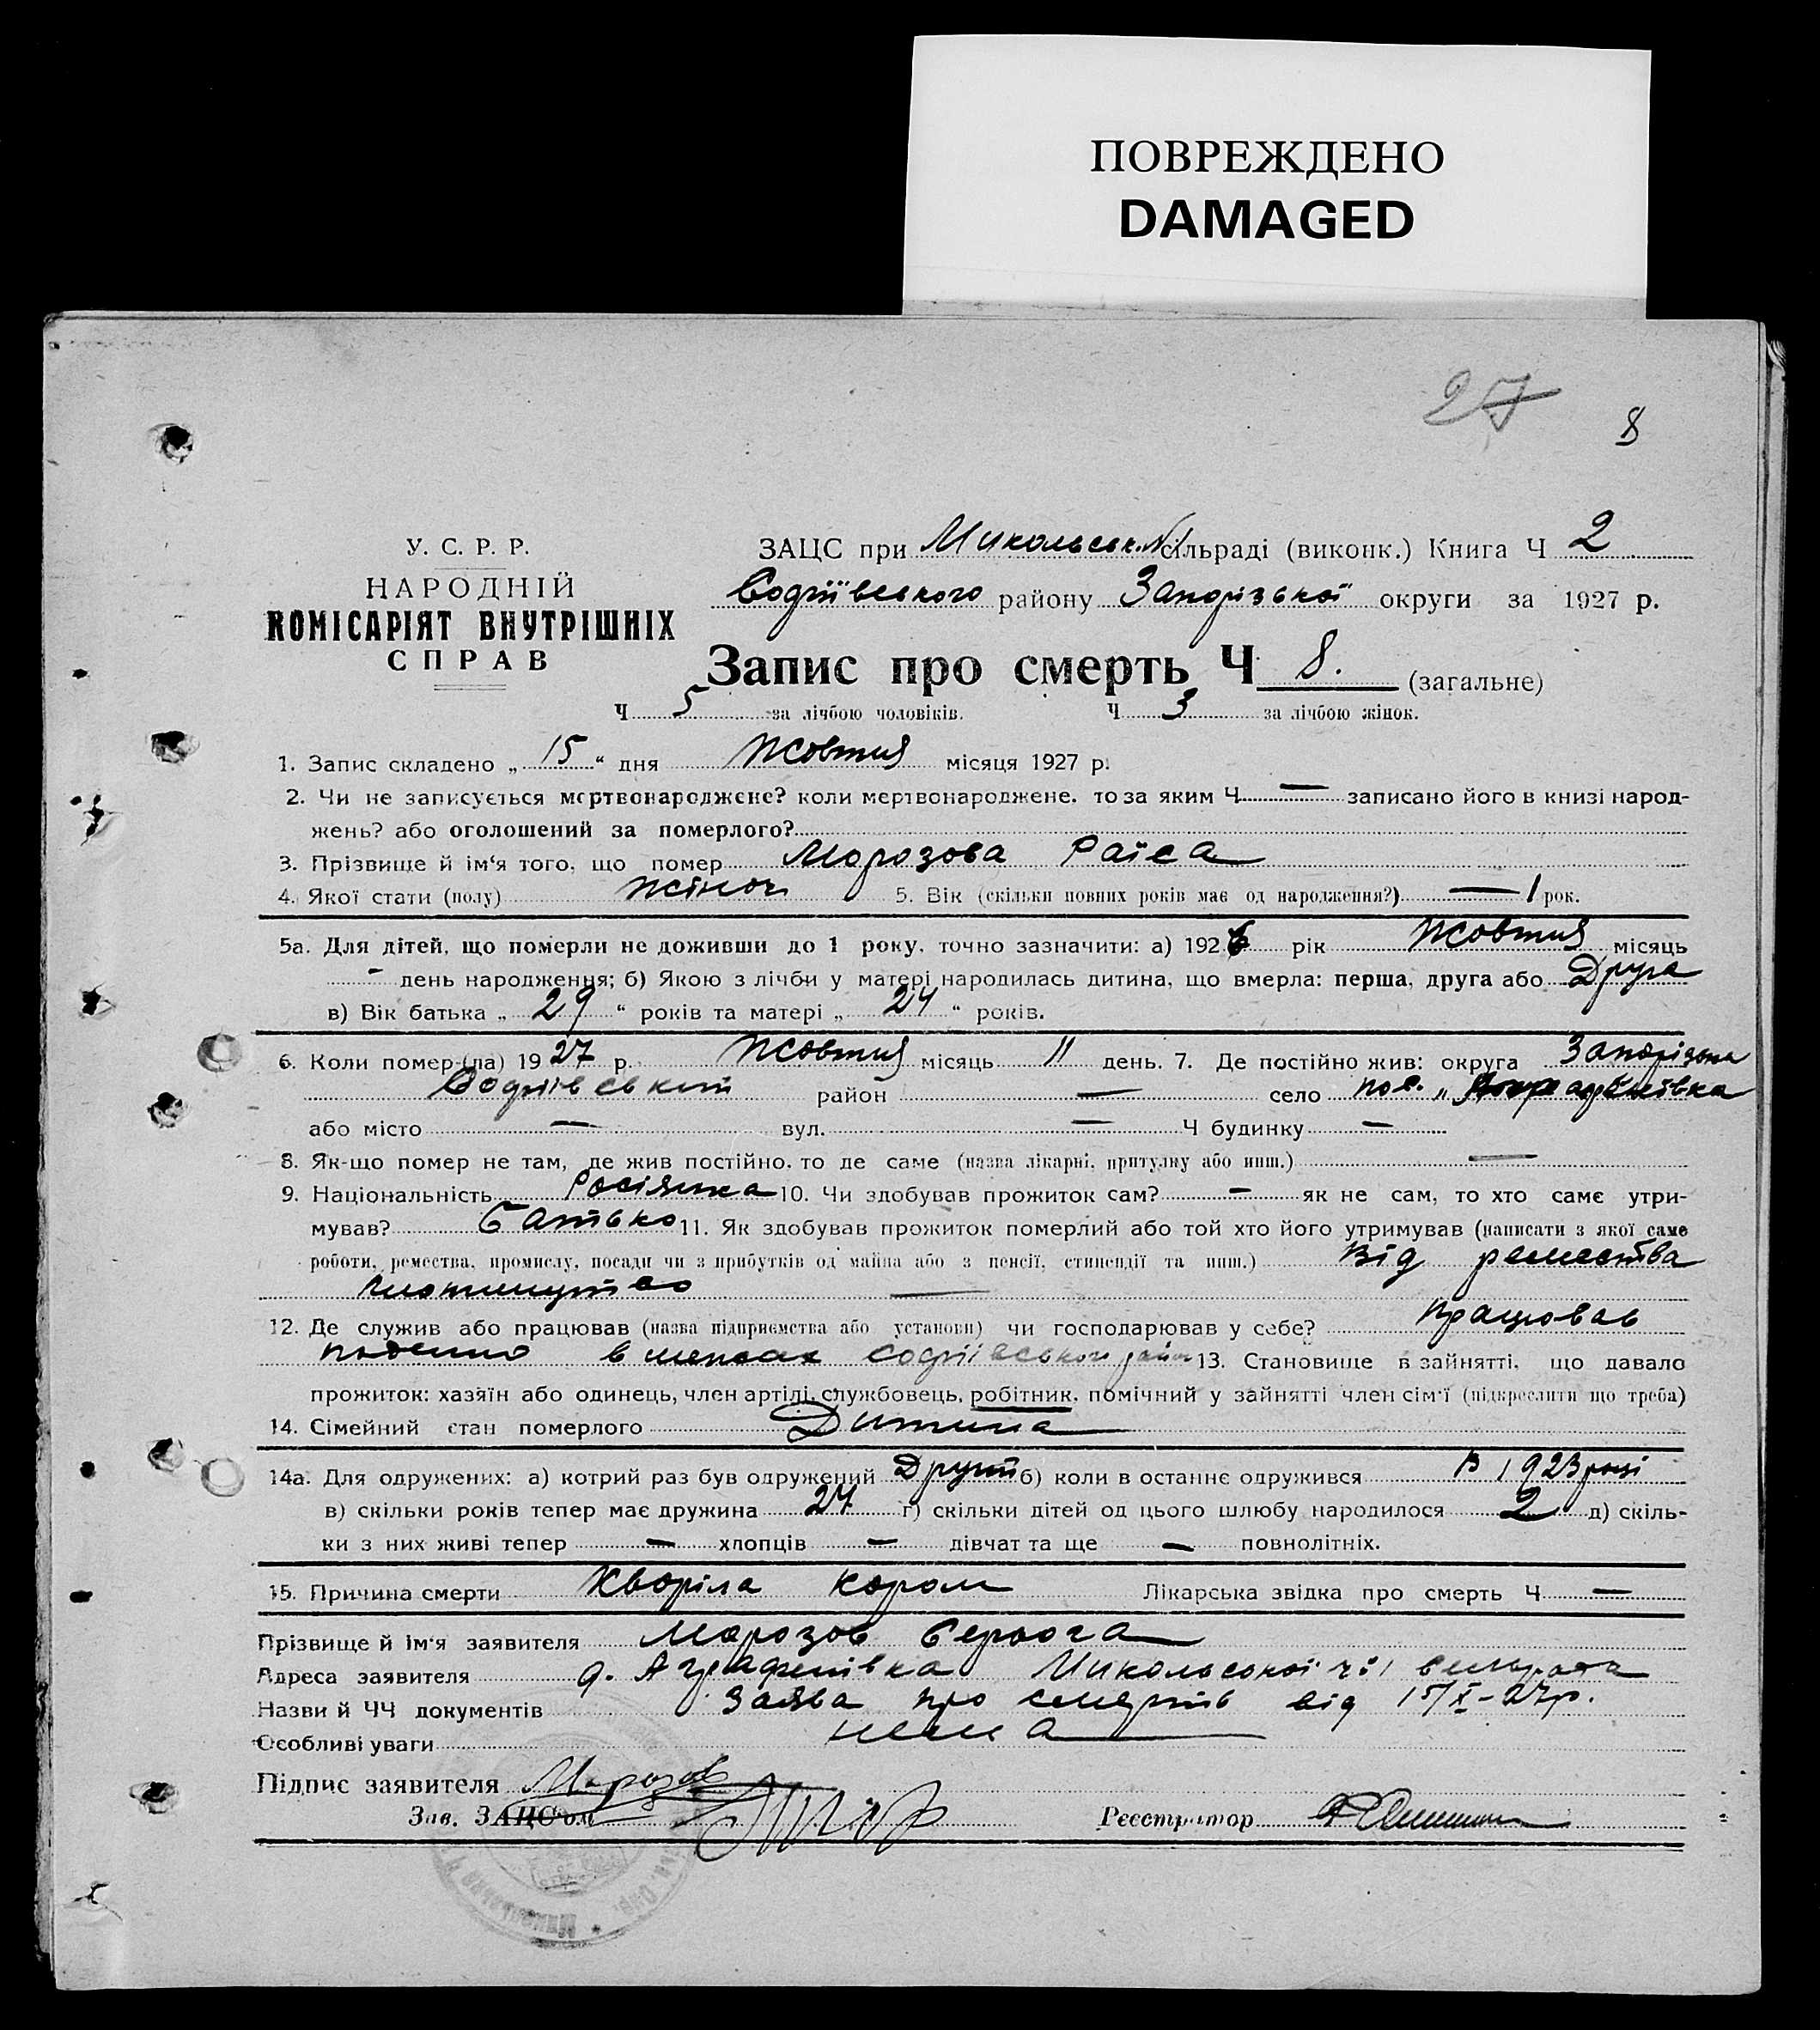 ПОВРЕЖДЕНО
DAMAGED
27
8
У. С. Р. Р.
НАРОДНІЙ
КОМІСАРІЯТ ВНУТРІШНІХ
СПРАВ
ЗАЦС при Микольськ. №1 сільраді (виконк.) Книга Ч 2
Софіївського району Запорізької округи за 1927 р.
Запис про смерть Ч 8. (загальне)
Ч 5 за лічбою чоловіків. Ч 3 за лічбою жінок.
1. Запис складено „ 15 “ дня Жовтня місяця 1927 р.
2. Чи не записується мертвонароджене? коли мертвонароджене, то за яким Ч — записано його в книзі народ-
жень? або оголошений за померлого?
3. Прізвище й ім'я того, що помер Морозова Раїса
4. Якої стати (полу) жіноч 5. Вік (скільки повних років має од народження?) — 1 рок.
5а. Для дітей, що померли не доживши до 1 року, точно зазначити: а) 1926 рік Жовтня місяць
- день народження; б) Якою з лічби у матері народилась дитина, що вмерла: перша, друга або Друга
в) Вік батька „ 29 “ років та матері „ 24 “ років.
6. Коли помер-(ла) 1927 р. Жовтня місяць 11 день. 7. Де постійно жив: округа Запорізька
Софіївський район — село пос. „
або місто — вул. — Ч будинку —
8. Як-що помер не там, де жив постійно, то де саме (назва лікарні, притулку або инш.) —
9. Національність Росіянка 10. Чи здобував прожиток сам? — як не сам, то хто саме утри-
мував? Батько 11. Як здобував прожиток померлий або той хто його утримував (написати з якої саме
роботи, ремества, промислу, посади чи з прибутків од майна або з пенсії, стипендії та инш.) Від ремества
—
12. Де служив або працював (назва підприємства або установи) чи господарював у себе? працював
в межах Софіївського район 13. Становище в зайнятті, що давало
прожиток: хазяїн або одинець, член артілі, службовець, робітник, помічний у зайнятті член сім'ї (підкреслити що треба)
14. Сімейний стан померлого Дитина
14а. Для одружених: а) котрий раз був одружений Другий б) коли в останнє одружився В 1923 році
в) скільки років тепер має дружина 24 г) скільки дітей од цього шлюбу народилося 2 д) скіль-
ки з них живі тепер — хлопців — дівчат та ще — повнолітніх.
15. Причина смерти Хворіла кором Лікарська звідка про смерть Ч —
Прізвище й ім'я заявителя Морозов Серьога
Адреса заявителя д. Аграфенівка Микольської ч 1 сільрада
Назви й ЧЧ документів Заява про смерть від 15/X-27р.
Особливі уваги нема
Підпис заявителя Морозов
Зав. ЗАЦС'ом
Реєстратор